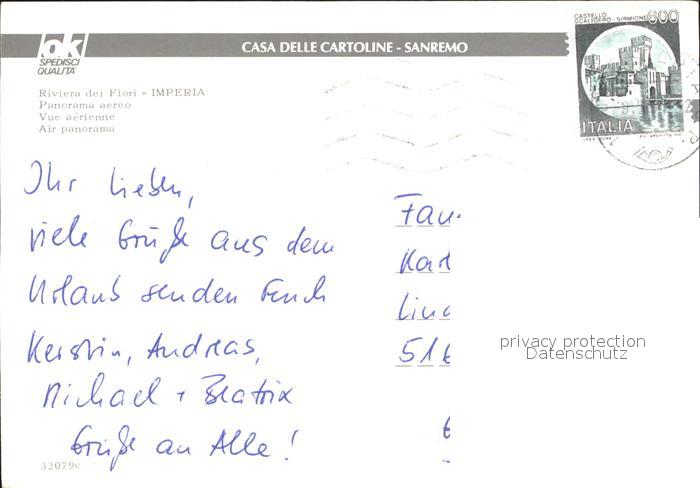 ok
SPEDISCI
QUALITA'
CASA DELLE CARTOLINE - SANREMO
CASTELLO
SCALIGERO - SIRMIONE
600
ITALIA
Riviera dei Fiori - IMPERIA
Panorama aereo
Vue aérienne
Air panorama
Ihr Lieben,
viele Grüße aus dem
Urlaub senden Euch
Kerstin, Andreas,
Michael + Beatrix
Grüße an Alle!
Fam.
Karl
516
privacy protection
Datenschutz
32079c